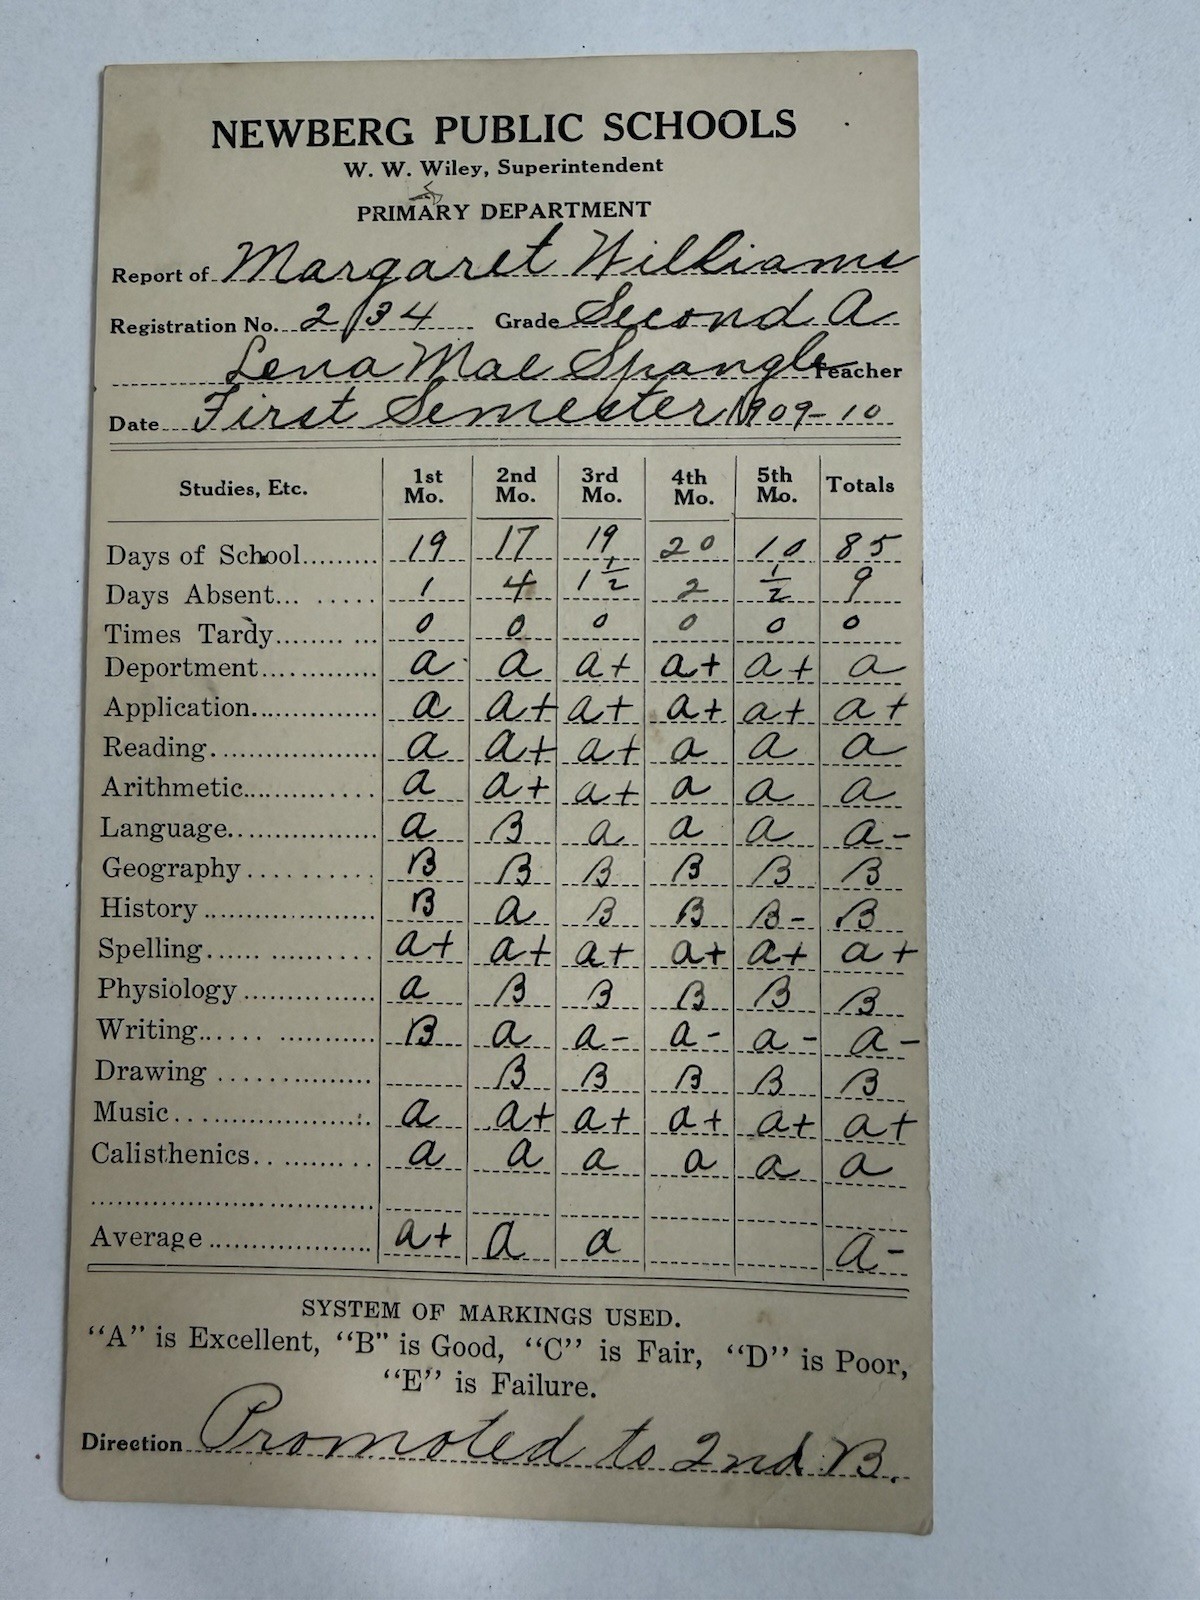 NEWBERG PUBLIC SCHOOLS
W. W. Wiley, Superintendent
PRIMARY DEPARTMENT
Report of Margaret Williams
Registration No. 2134 Grade Second A
Lena Mae Spangle Teacher
Date First Semester 1909-10
Studies, Etc. 1st Mo. 2nd Mo. 3rd Mo. 4th Mo. 5th Mo. Totals
Days of School 19 17 19 20 10 85
Days Absent 1 4 1 1/2 2 1/2 9
Times Tardy 0 0 0 0 0 0
Deportment a a a+ a+ a+ a
Application a a+ a+ a+ a+ a+
Reading a a+ a+ a a a
Arithmetic a a+ a+ a a a
Language a B a a a a-
Geography B B B B B B
History B a B B B- B
Spelling a+ a+ a+ a+ a+ a+
Physiology a B B B B B
Writing B a a- a- a- a-
Drawing B B B B B
Music a a+ a+ a+ a+ a+
Calisthenics a a a a a a
Average a+ a a a-
SYSTEM OF MARKINGS USED.
"A" is Excellent, "B" is Good, "C" is Fair, "D" is Poor,
"E" is Failure.
Direction Promoted to 2nd B.